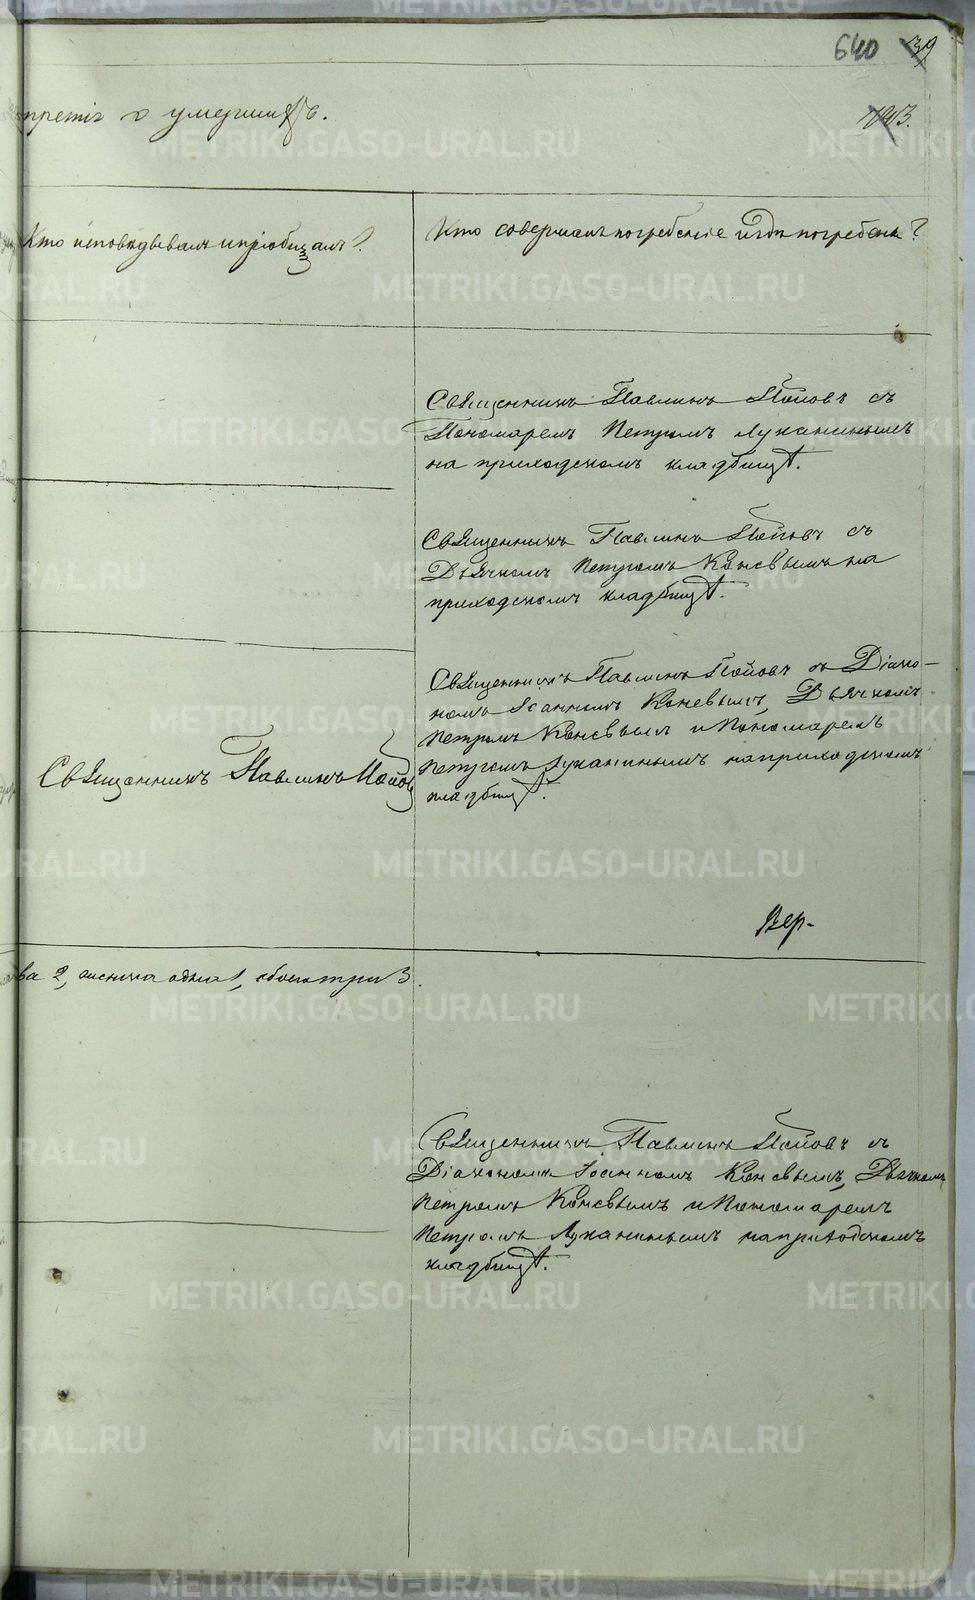 640 39
третiя о умершихъ.
Кто исповѣдывалъ и прiобщалъ?
Кто совершалъ погребенiе и гдѣ погребены?
Священникъ Павлинъ Поповъ съ
Пономаремъ Петромъ Луканинымъ
на приходскомъ кладбищѣ.
Священникъ Павлинъ Поповъ съ
Дьячкомъ Петромъ Коневымъ на
приходскомъ кладбищѣ.
Священникъ Павлинъ Поповъ
Священникъ Павлинъ Поповъ съ Дiако-
номъ Iоанномъ Коневымъ, Дьячкомъ
Петромъ Коневымъ и Пономаремъ
Петромъ Луканинымъ на приходскомъ
кладбищѣ.
Вер-
ва 2, женска одна 1, обоего три 3.
Священникъ Павлинъ Поповъ съ
Дiакономъ Iоанномъ Коневымъ, Дьячкомъ
Петромъ Коневымъ и Пономаремъ
Петромъ Луканинымъ на приходскомъ
кладбищѣ.
METRIKI.GASO-URAL.RU